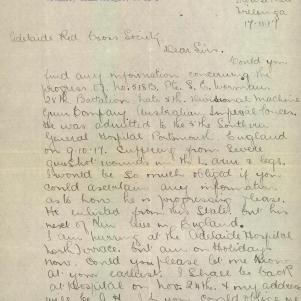 17-11-17
Adelaide Red Cross Society
Dear Sir.
Could you
find any information concerning the
progress of no. 5188, Pte. S. C. Worman
28th Battalion late 8th. Divisional Machine
Gun Company Australian Imperial Forces.
He was admitted to the 5th Southern
General Hospital Portsmouth England
on 9.10.17. Suffering from Severe
gunshot wounds in the L. arm & legs.
I would be so much obliged if you
could ascertain any information
as to how he is progressing please.
He enlisted from this State but his
next of Kin are in England.
I am nursing at the Adelaide Hospital
North Terrace, but am on Holidays
now. Could you please let me know
at your earliest. I shall be back
at Hospital on Nov 24th. & my address